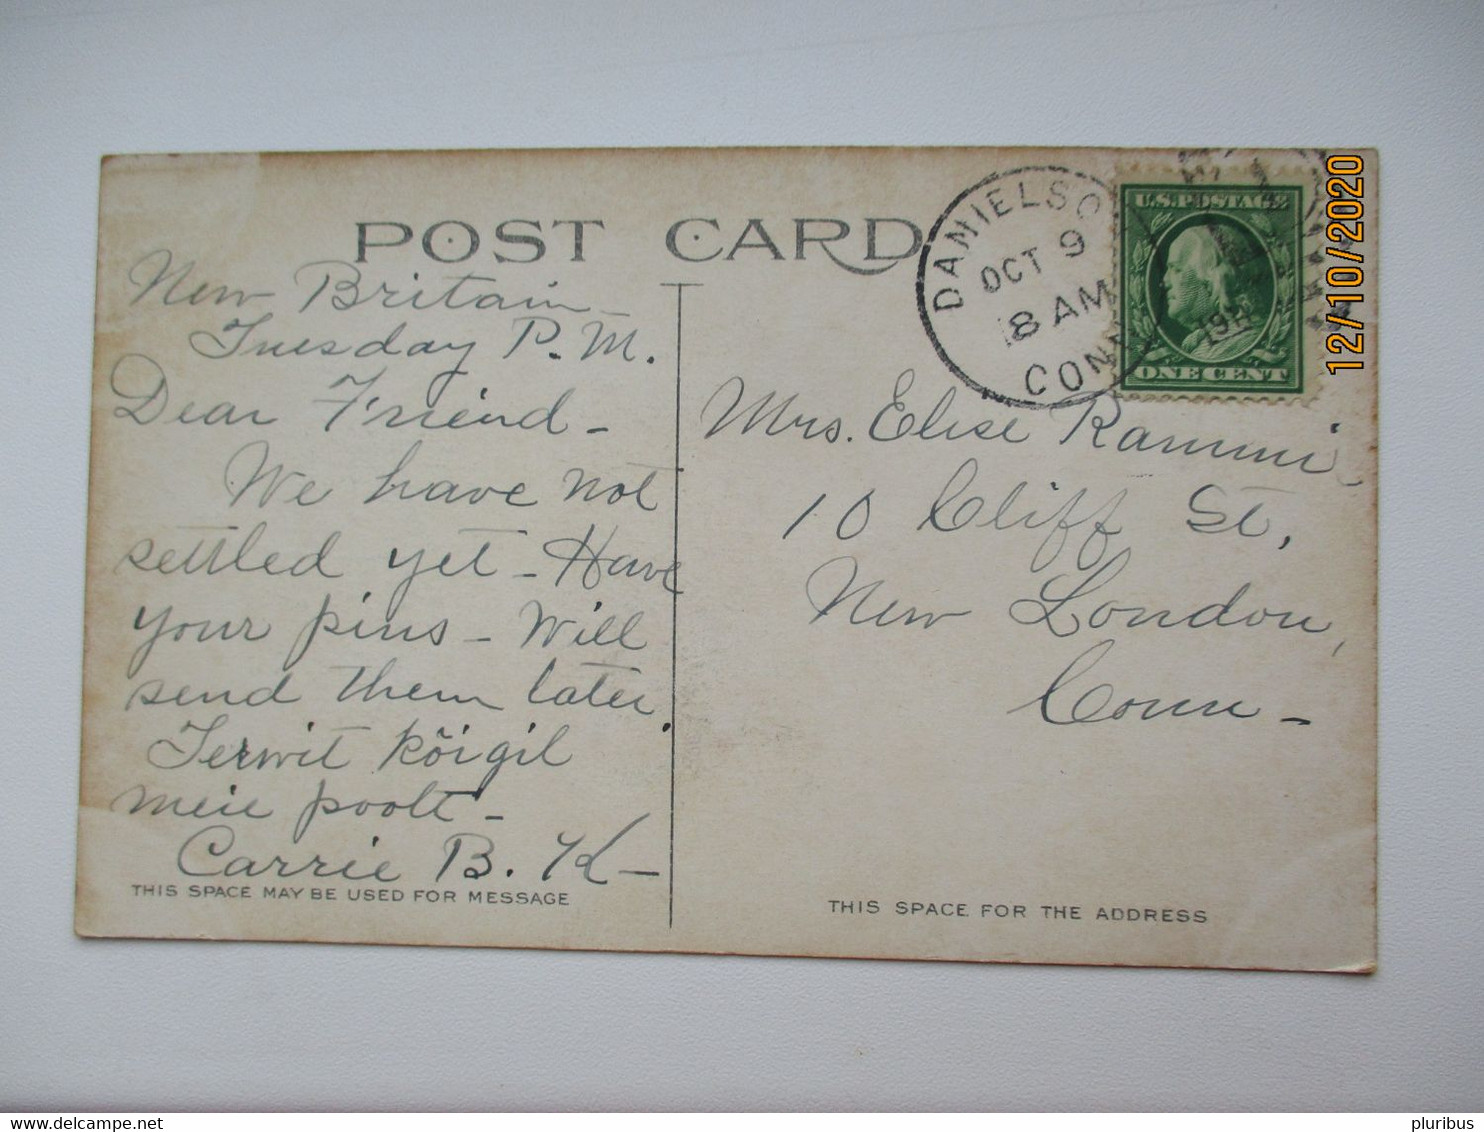 POST CARD
New Britain
Tuesday P.M.
Dear Friend -
We have not
settled yet - Have
your pins - Will
send them later.
Terwit kõigil
meie poolt -
Carrie B. K -
THIS SPACE MAY BE USED FOR MESSAGE
DANIELSO
OCT 9
8 AM
CONN
U.S. POSTAGE
ONE CENT
Mrs. Elise Rammi
10 Cliff St,
New London,
Conn -
THIS SPACE FOR THE ADDRESS
12/10/2020
pluribus